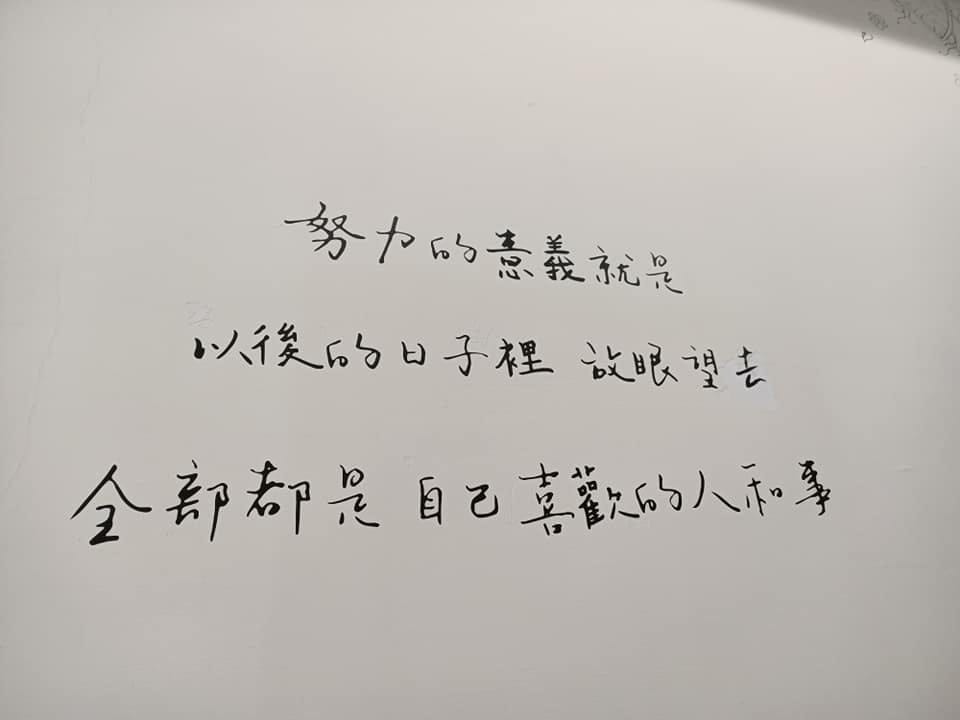 努力的意義就是
以後的日子裡 放眼望去
全部都是 自己喜歡的人和事